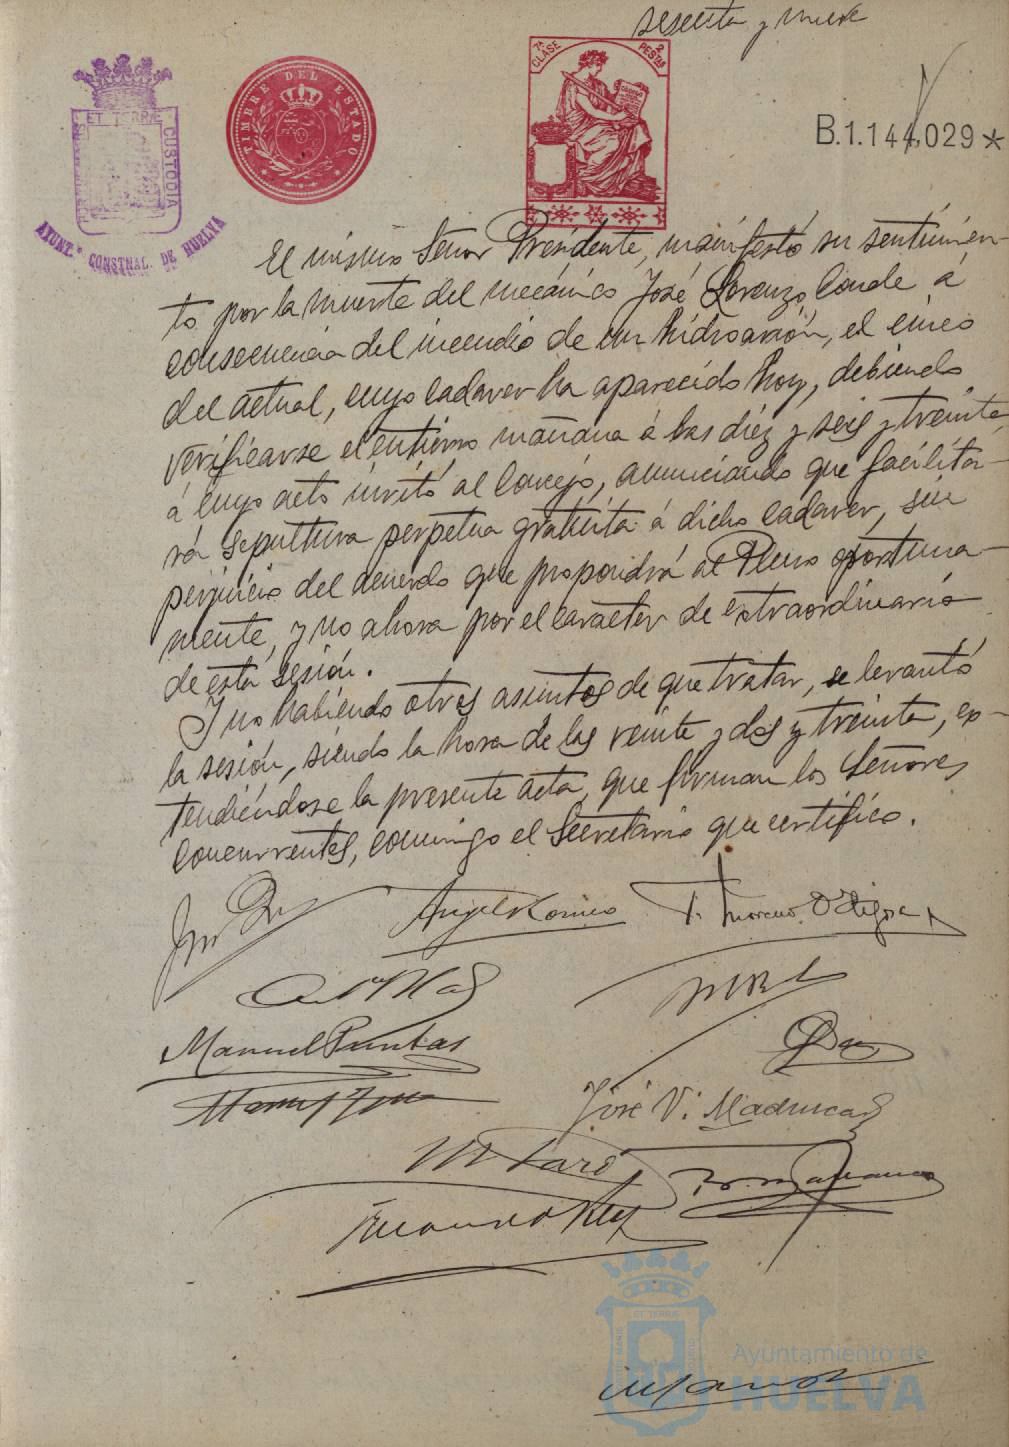 sesenta y nueve
7ª CLASE
2 PESTAS
TIMBRE DEL ESTADO
ET TERRÆ
CUSTODIA
AYUNT.º CONSTNAL. DE HUELVA
B.1.144,029*
El mismo Señor Presidente, manifestó su sentimien-
to por la muerte del mecánico José Lorenzo Conde á
consecuencia del incendio de un hidroavión, el cinco
del actual, cuyo cadaver ha aparecido hoy, debiendo
verificarse el entierro mañana á las diez y seis y treinta,
á cuyo acto invitó al Concejo, anunciando que facilita-
rá sepultura perpetua gratuita á dicho cadaver, sin
perjuicio del acuerdo que propondrá al Pleno oportuna-
mente, y no ahora por el caracter de extraordinario
de esta sesión.
Y no habiendo otros asuntos de que tratar, se levantó
la sesión, siendo la hora de las veinte y dos y treinta, ex-
tendiéndose la presente acta, que firman los Señores
concurrentes, conmigo el Secretario que certifico.
Angel Romeu
F. Moreno Ortega
Manuel Puntas
José V. Madruga
ET TERRIS
Ayuntamiento de
HUELVA